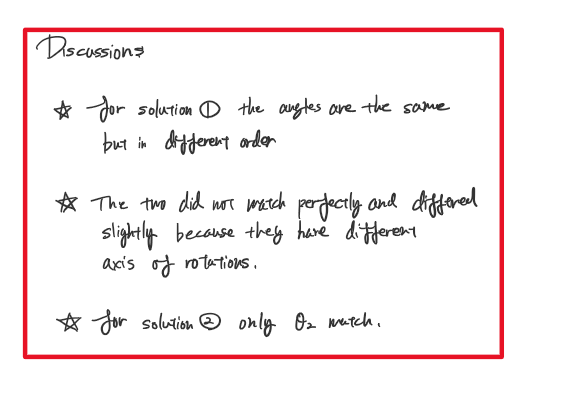 Discussions
☆ for solution ① the angles are the same
but in different order
☆ The two did not match perfectly and differed
slightly because they have different
axis of rotations.
☆ for solution ② only θ₂ match.